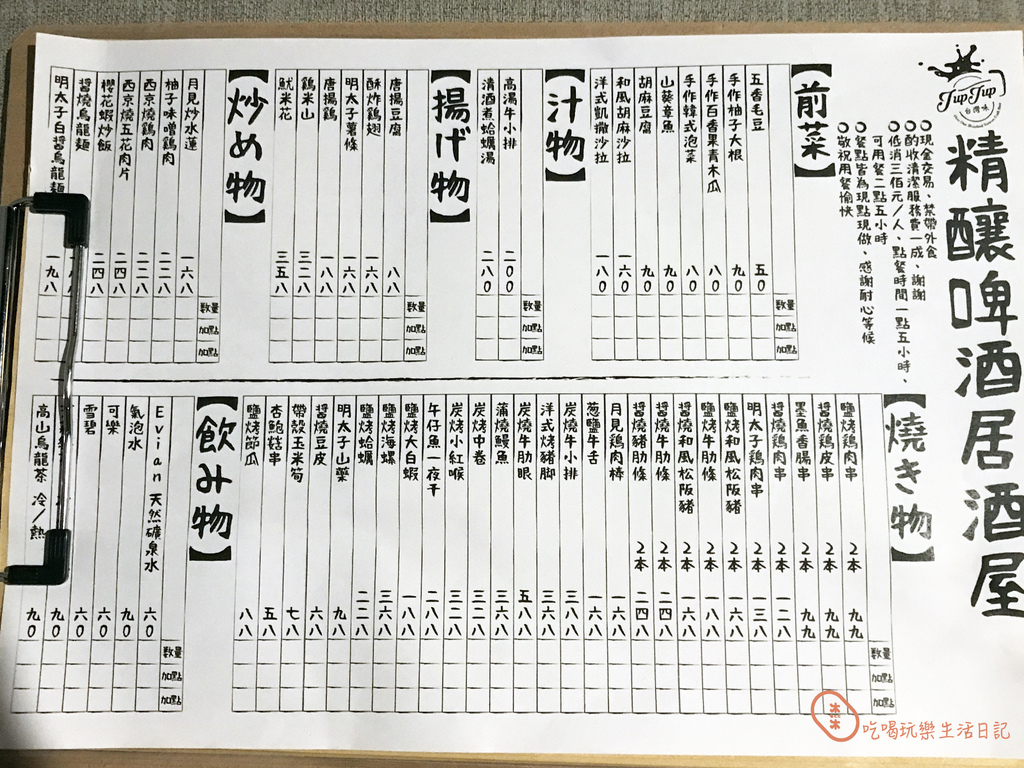 JupJup
台灣味
精釀啤酒居酒屋
現金交易、禁帶外食
酌收清潔服務費一成、謝謝
低消三佰元/人、點餐時間一點五小時、
可用餐二點五小時
餐點皆為現點現做、感謝耐心等候
敬祝用餐愉快
【前菜】
數量 加點 加點
五香毛豆 五0
手作柚子大根 九0
手作百香果青木瓜 八0
手作韓式泡菜 八0
山葵章魚 九0
胡麻豆腐 九0
和風胡麻沙拉 一六0
洋式凱撒沙拉 一八0
【汁物】
數量 加點 加點
高湯牛小排 二00
清酒煮蛤蠣湯 二八0
【揚げ物】
數量 加點 加點
唐揚豆腐 八八
酥炸鷄翅 一六八
明太子薯條 一六八
唐揚鷄 一八八
鷄米山 三二八
魷米花 三五八
【炒め物】
數量 加點 加點
月見炒水蓮 一六八
柚子味噌鷄肉 二二八
西京燒鷄肉 二二八
西京燒五花肉片 二四八
櫻花蝦炒飯 二四八
醬燒烏龍麵
明太子白醬烏龍麵 一九八
【燒き物】
數量 加點 加點
鹽烤鷄肉串 2本 九九
醬燒鷄皮串 2本 九九
墨魚香腸串 2本 九九
醬燒鷄肉串 2本 一二八
明太子鷄肉串 2本 一三八
鹽烤和風松阪豬 2本 一六八
鹽烤牛肋條 2本 一八八
醬燒和風松阪豬 2本 一六八
醬燒牛肋條 2本 二四八
醬燒豬肋條 2本 二四八
月見鷄肉棒 一六八
蔥鹽牛舌 一六八
炭燒牛小排 三八八
洋式烤豬腳 三六八
炭燒牛肋眼 五八八
蒲燒鰻魚 三六八
炭烤中卷 三二八
炭烤小紅喉 三二八
午仔魚一夜干 二八八
鹽烤大白蝦 一八八
鹽烤海螺 三六八
鹽烤蛤蠣 二二八
明太子山藥 九八
醬燒豆皮 一六八
帶殼玉米筍 七八
杏鮑菇串 五八
鹽烤節瓜 八八
【飲み物】
數量 加點 加點
Evian 天然礦泉水 六0
氣泡水 九0
可樂 六0
雪碧 六0
九0
高山烏龍茶 冷/熱 九0
吃喝玩樂生活日記